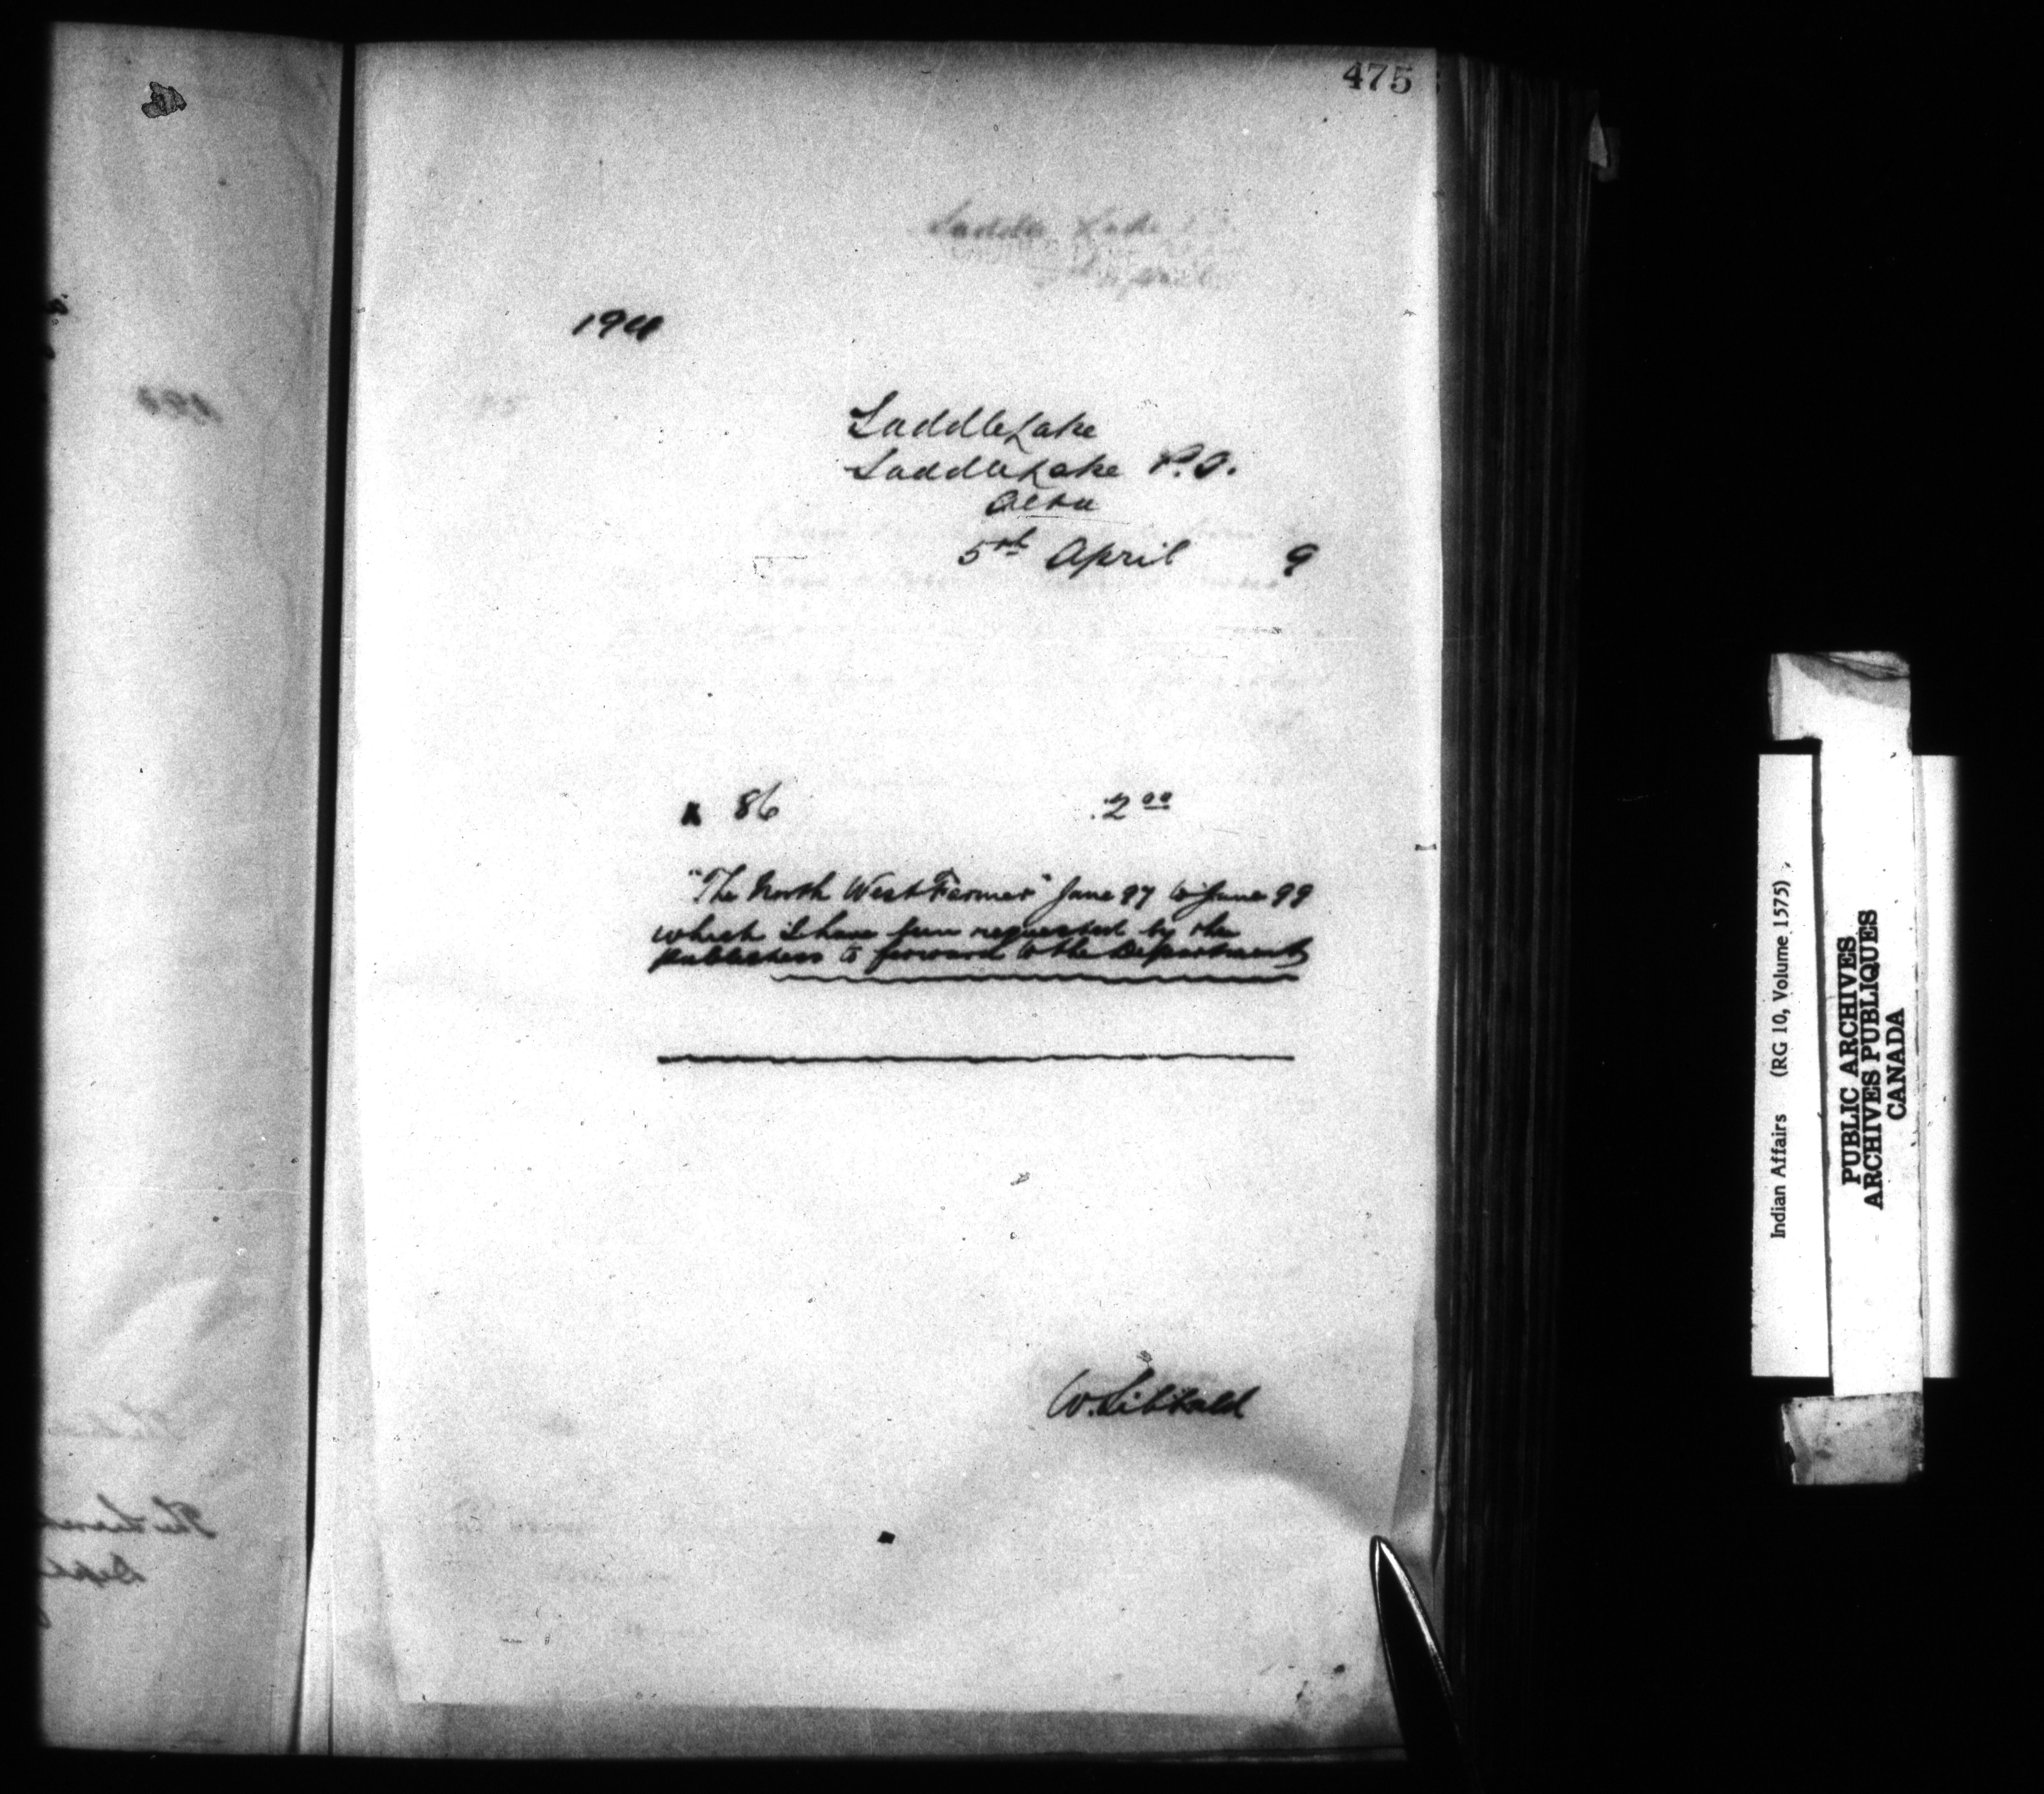 475
Saddle Lake
194
Saddle Lake
Saddle Lake P.O.
Alta
5th April 9
86 2 00
"The North West Farmer" June 97 to June 99
which I have been requested by the
publishers to forward to the Department
W. Sibbald
Indian Affairs (RG 10, Volume 1575)
PUBLIC ARCHIVES
ARCHIVES PUBLIQUES
CANADA